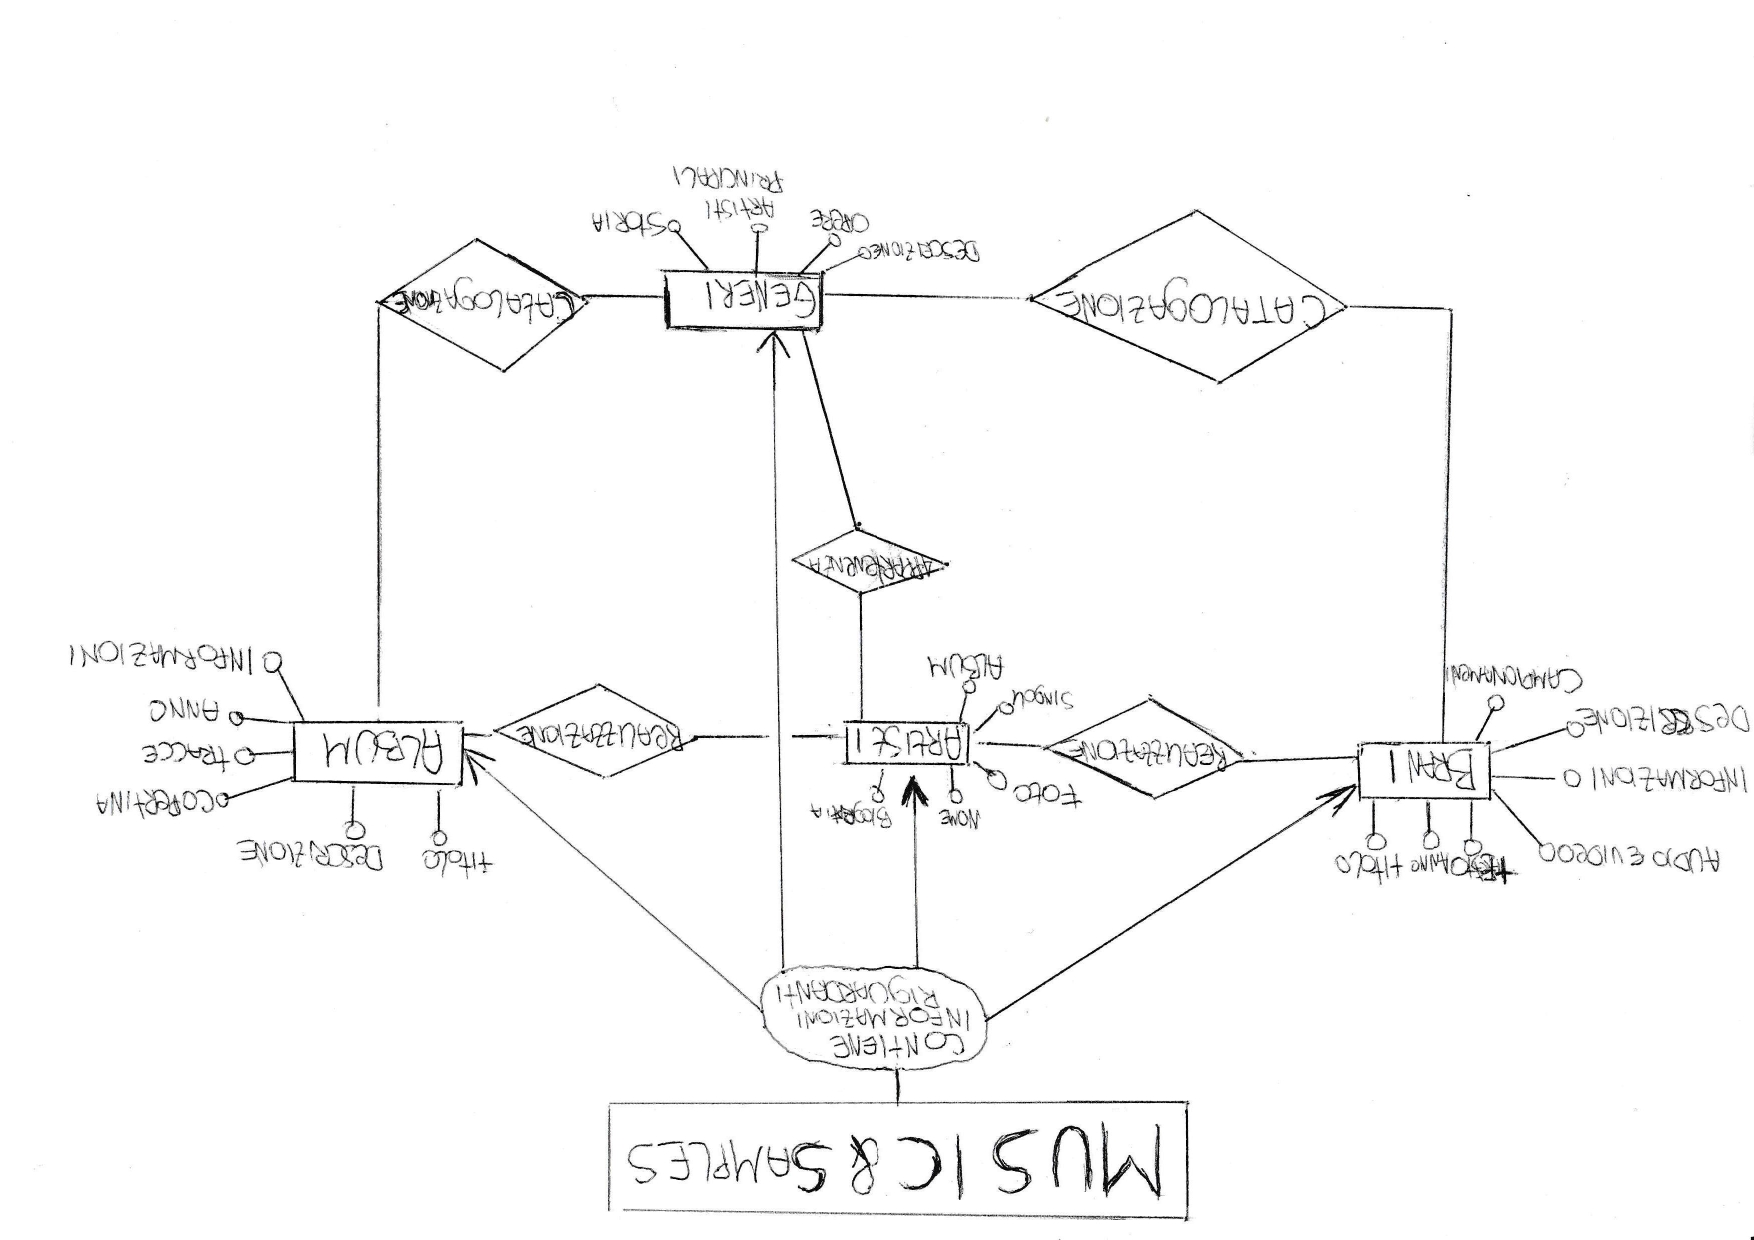 MUSIC & SAMPLES
CONTIENE
INFORMAZIONI
RIGUARDANTI
AUDIO E VIDEO
TESTO
ANNO
TITOLO
INFORMAZIONI
BRANI
DESCRIZIONE
CAMPIONAMENI
REALIZZAZIONE
FOTO
NOME
BIOGRAFIA
ARTISTI
SINGOLI
ALBUM
REALIZZAZIONE
TITOLO
DESCRIZIONE
COPERTINA
ALBUM
TRACCE
ANNO
INFORMAZIONI
APPARTENENZA
CATALOGAZIONE
GENERI
CATALOGAZIONE
DESCRIZIONE
OPERE
ARTISTI
PRINCIPALI
STORIA